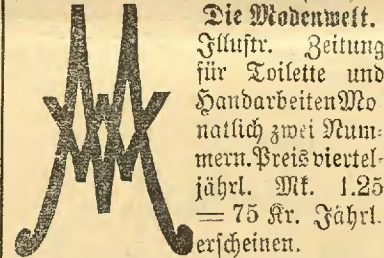 Die Modenwelt.
Illustr. Zeitung
für Toilette und
Handarbeiten Mo
natlich zwei Num-
mern. Preis viertel-
jährl. Mk. 1.25
= 75 Kr. Jährl.
erscheinen.